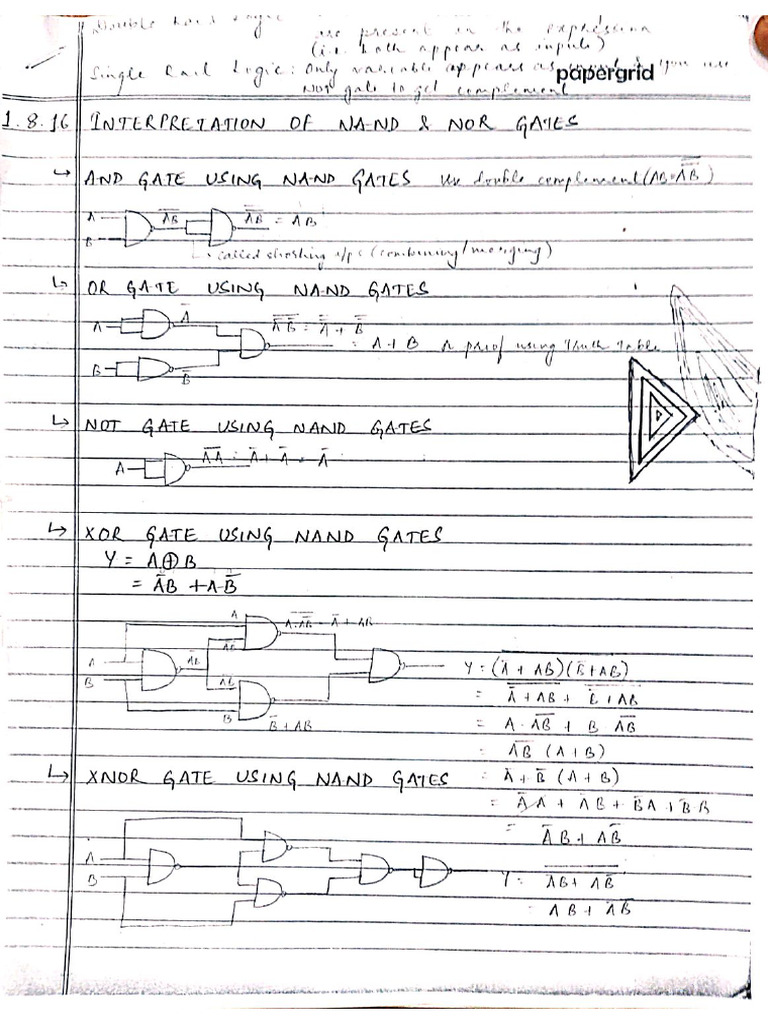 Double Rail Logic
are present in the expression
(i.e. both appear as inputs)
Single Rail Logic: Only variable appears as input & you use
papergrid
NOT gate to get complement
1.8.16 INTERPRETATION OF NAND & NOR GATES
↳ AND GATE USING NAND GATES Use double complement (AB = A̿B̿)
A A̅B̅ A̿B̿ = AB
B
called shorting i/ps (combining/merging)
↳ OR GATE USING NAND GATES
A A̅
A̅̅ B̅̅ = A̿ + B̿
= A + B proof using Truth Table
B B̅
↳ NOT GATE USING NAND GATES
A A̅A̅ = A̅ + A̅ = A̅
↳ XOR GATE USING NAND GATES
Y = A⊕B
= A̅B + AB̅
A A·A̅B̅ = A̅ + AB
A A̅B̅ A̅B̅
B A̅B̅
B B̅ + AB
Y = (A̅ + AB)(B̅ + AB)
= A̅ + AB + B̅ + AB
= A · A̅B̅ + B · A̅B̅
= A̅B̅ (A+B)
↳ XNOR GATE USING NAND GATES
= A̅ + B̅ (A + B)
= A̅A + A̅B + B̅A + B̅B
= A̅B + AB̅
A
B
Y = A̅B + AB̅
= AB + A̅B̅